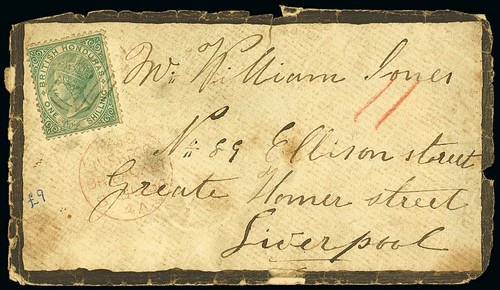 BRITISH HONDURAS
ONE SHILLING
Mr. William Jones
No: 89 Ellison street
Greate Homer street
Liverpool
£9